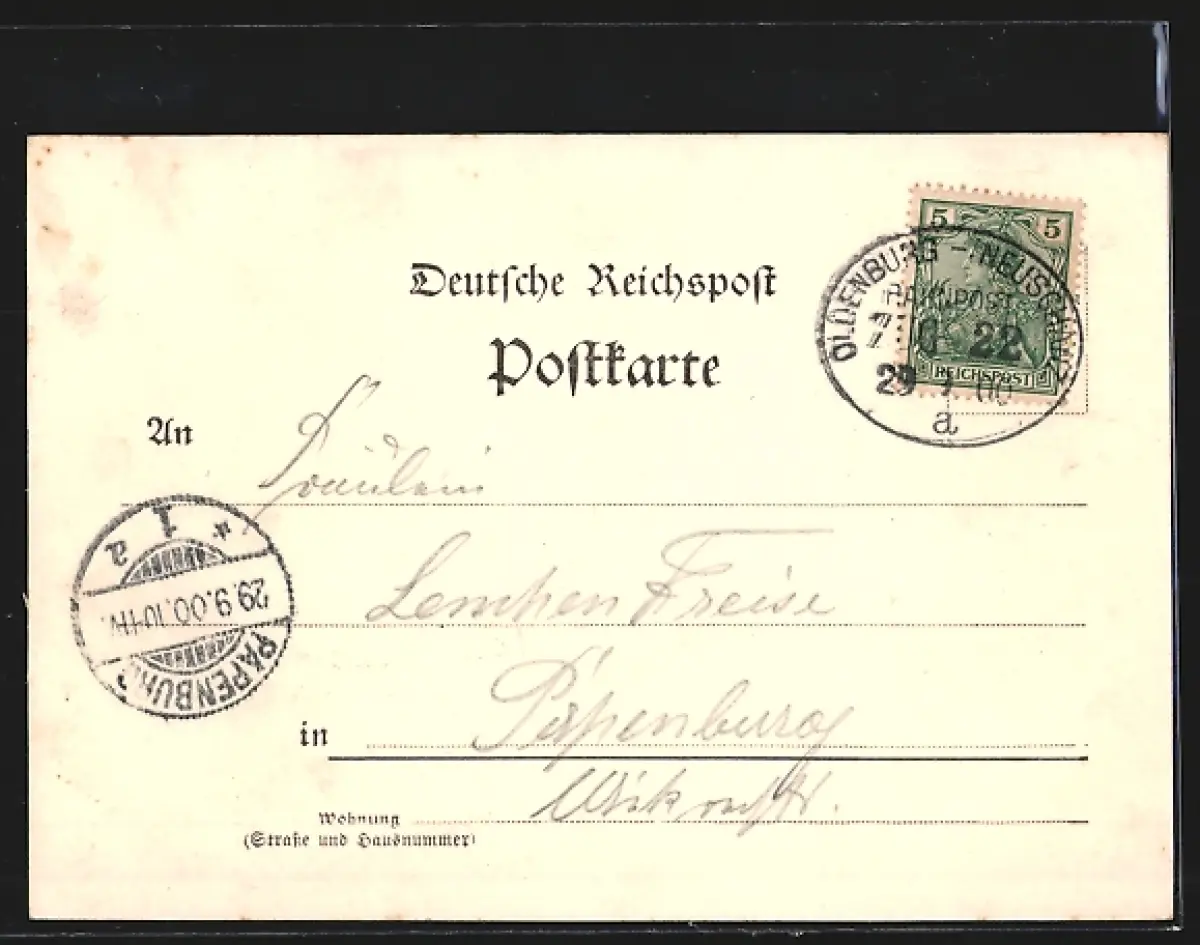 5 5
OLDENBURG - NEUSCHANZ
BAHNPOST
22
29 00
a
REICHSPOST
Deutsche Reichspost
Postkarte
An
Fräulein
Lenchen Freise
in Papenburg
Wohnung
(Straße und Hausnummer)
1
a
29.9.00.10-11V.
PAPENBURG